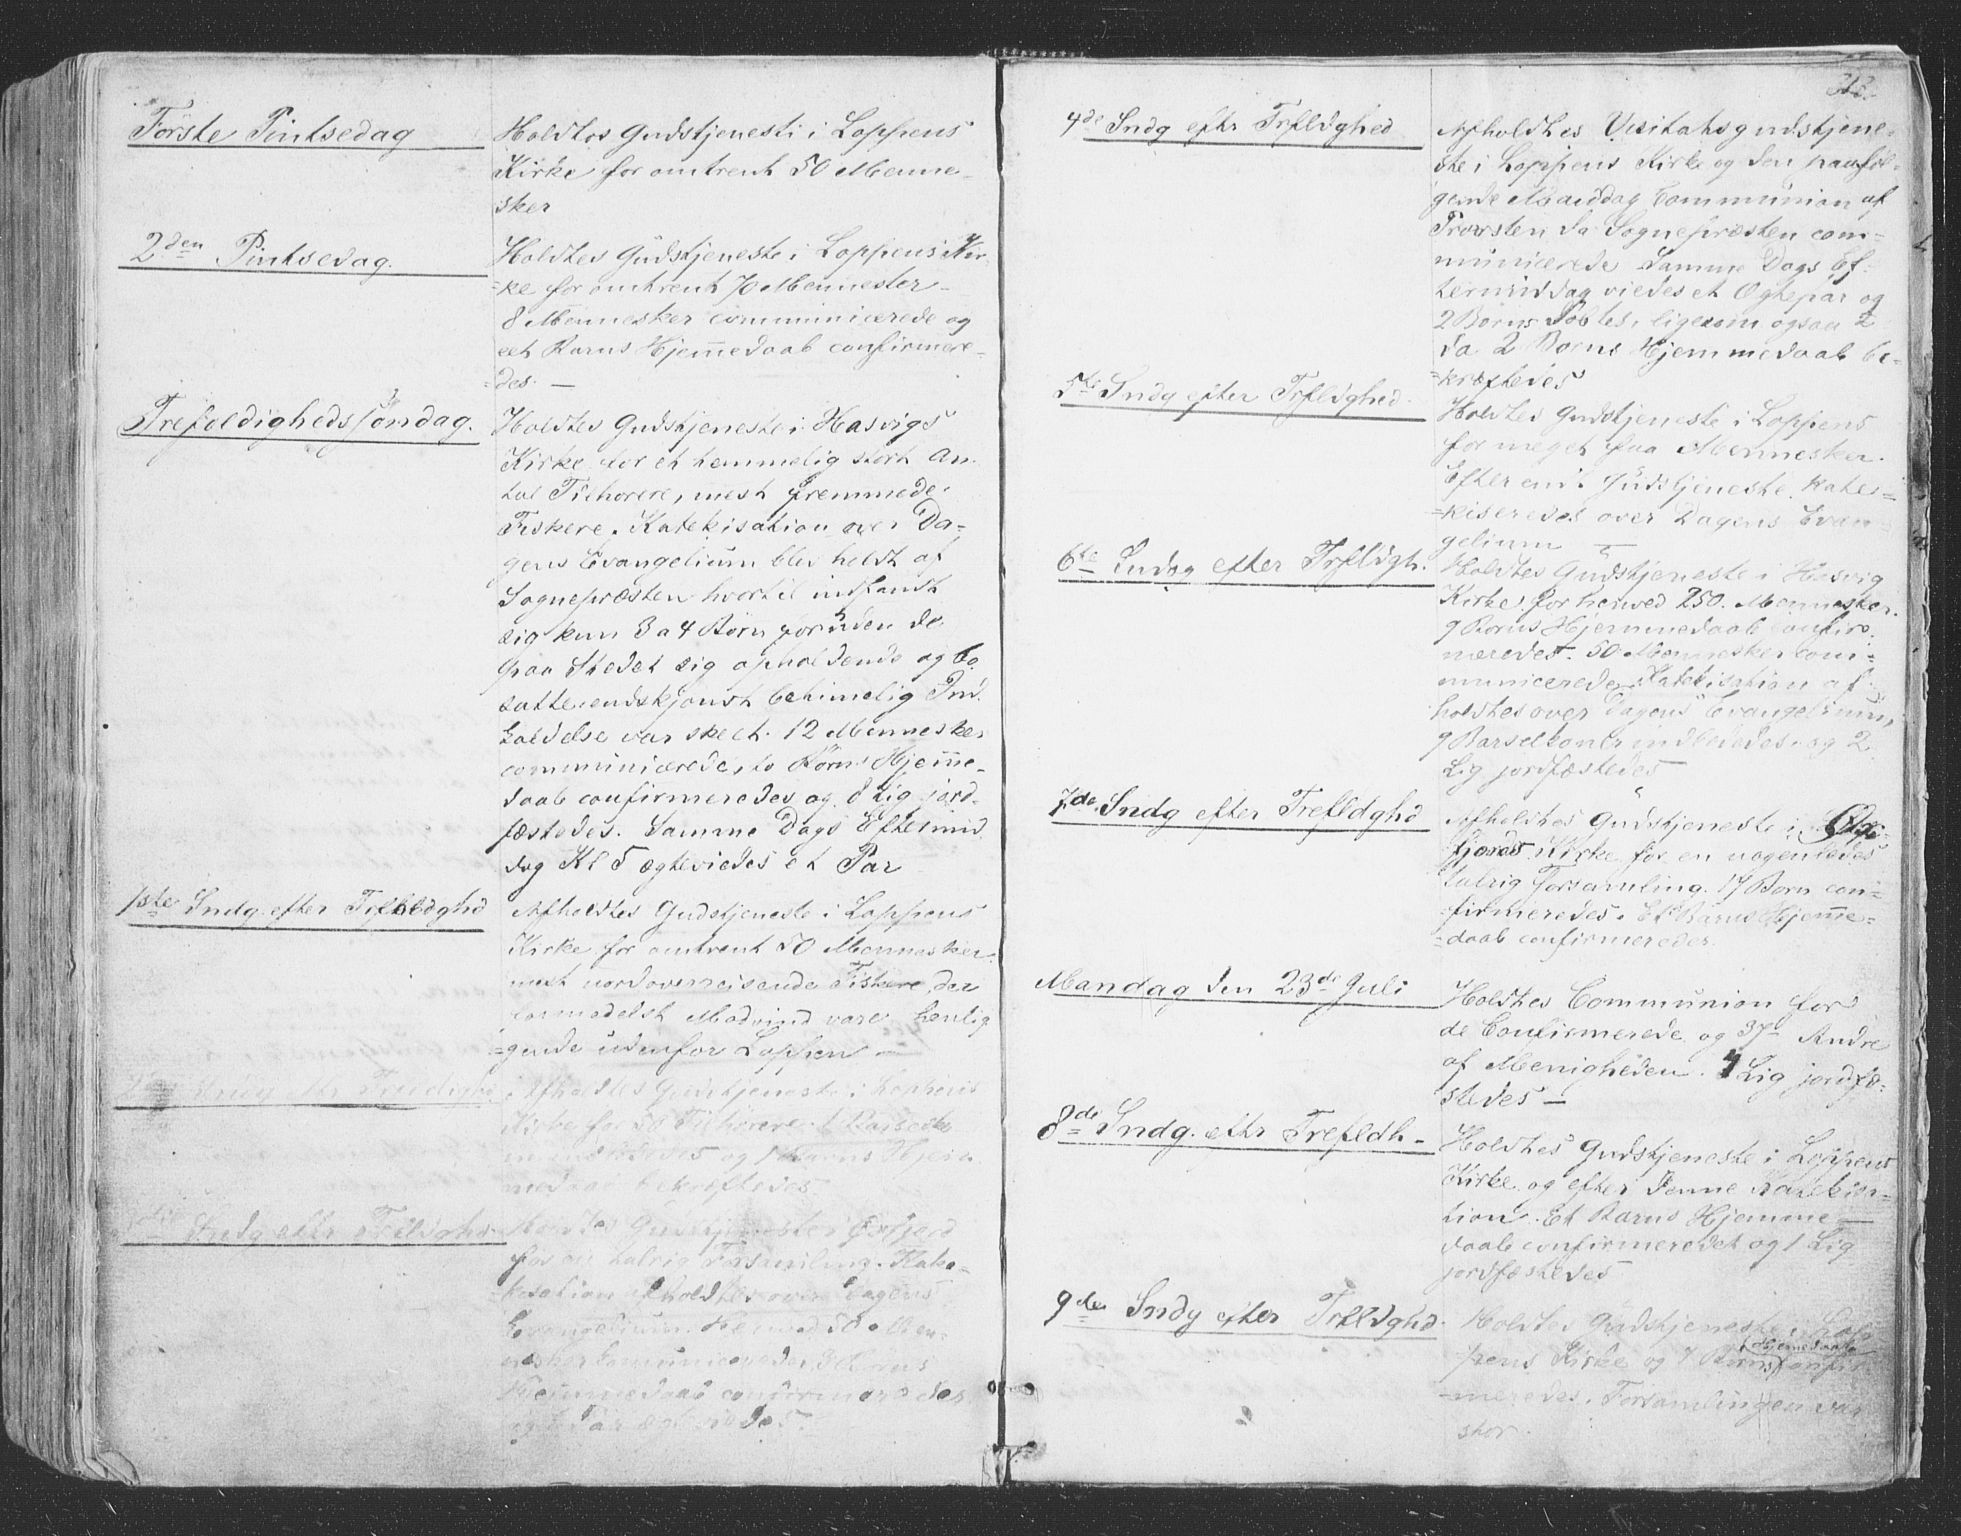 Første Pintsedag
Holdtes Gudstjeneste i Loppens
Kirke for omtrent 50 Menne-
sker
2den Pintsedag.
Holdtes Gudstjeneste i Loppens Kir-
=ke for omtrent 70 Mennesker
8 Mennesker communicerede og
eet Barns Hjemmedaab confirmere-
=des. —
Trefoldigheds Søndag.
Holdtes Gudstjeneste i Hasvigs
Kirke for et temmelig stort An-
tal Tilhørere, mest fremmede
Fiskere. Katekisation over Da-
gens Evangelium blev holdt af
Sognepræsten hvortil indfandt
sig kun 3 a 4 Børn foruden de
paa Stedet sig opholdende og bo
satte endskjønst betimelig Ind-
kaldelse var skeet. 12 Mennesker
communicerede, to Børns Hjemme-
daab confirmeredes og 8 Lig jord-
fæstedes. Samme Dags Eftermid-
dag Kl 5 ægteviedes et Par
1ste Sndg. efter Trefoldghd
Afholdtes Gudstjeneste i Loppens
Kirke for omtrent 50 Mennesker
mest nordoverreisende Fiskere der
formedelst Modvind vare henlig
=gende udenfor Loppen —
Afholdtes Gudstjeneste i Loppens
Kirke for 50 Tilhørere. 1 Barselko
ne indlededes og 1 Barns Hjem
medaab bekræftedes
Sndg efter Trfldghd
Holdtes Gudstjeneste i Øxfjord
for en talrig Forsamling. Kate-
kisation afholdtes over Dagens
Evangelium. Henved 50 Men-
nesker communicerede, 3 Børns
Hjemmedaab confirmeredes
og 1 Par ægteviedes.
313.
4de Sndg efter Trfldghed
Afholdtes Visitatsgudstjene-
ste i Loppens Kirke og den paaføl-
gende Mandag Communion af
Provsten da Sognepræsten com-
municerede Samme Dags Ef-
termiddag viedes et Ægtepar og
2 Børn døbtes, ligesom ogsaa
da 2 Børns Hjemmedaab be-
=kræftedes
5te Sndg efter Trfldghed.
Holdtes Gudstjeneste i Loppens
for meget faa Mennesker.
Efter endt Gudstjeneste kate-
=kiseredes over Dagens Evan-
gelium —
6te Sndag efter Trfldgh.
Holdtes Gudstjeneste i Hasvig
Kirke for henved 250 Mennesker.
9 Børns Hjemmedaab confir-
meredes. 50 Mennesker com-
municerede. Katekisation af-
holdtes over Dagens Evangelium,
9 Barselkoner indlededes og 2
Lig jordfæstedes
7de Sndg efter Trefldghd
Afholdtes Gudstjeneste i Øx-
fjords Kirke for en nogenledes
talrig Forsamling. 17 Børn con-
=firmeredes. Et Barns Hjemme-
=daab confirmeredes.
Mandag den 23de Juli
Holdtes Communion for
de Confirmerede og 37 Andre
af Menigheden. 4 Lig jordfæ-
stedes —
8de Sndg. eftr Trefldh-
Holdtes Gudstjeneste i Loppens
Kirke og efter denne Katekisa-
tion. Et Barns Hjemme-
daab confirmeredes og 1 Lig
jordfæstedes
9de Sndg efter Trfldghd.
Holdtes Gudstjeneste i Lop-
pens Kirke og 7 Børns Hjemmedaab confir-
=meredes. Forsamlingen var
stor.